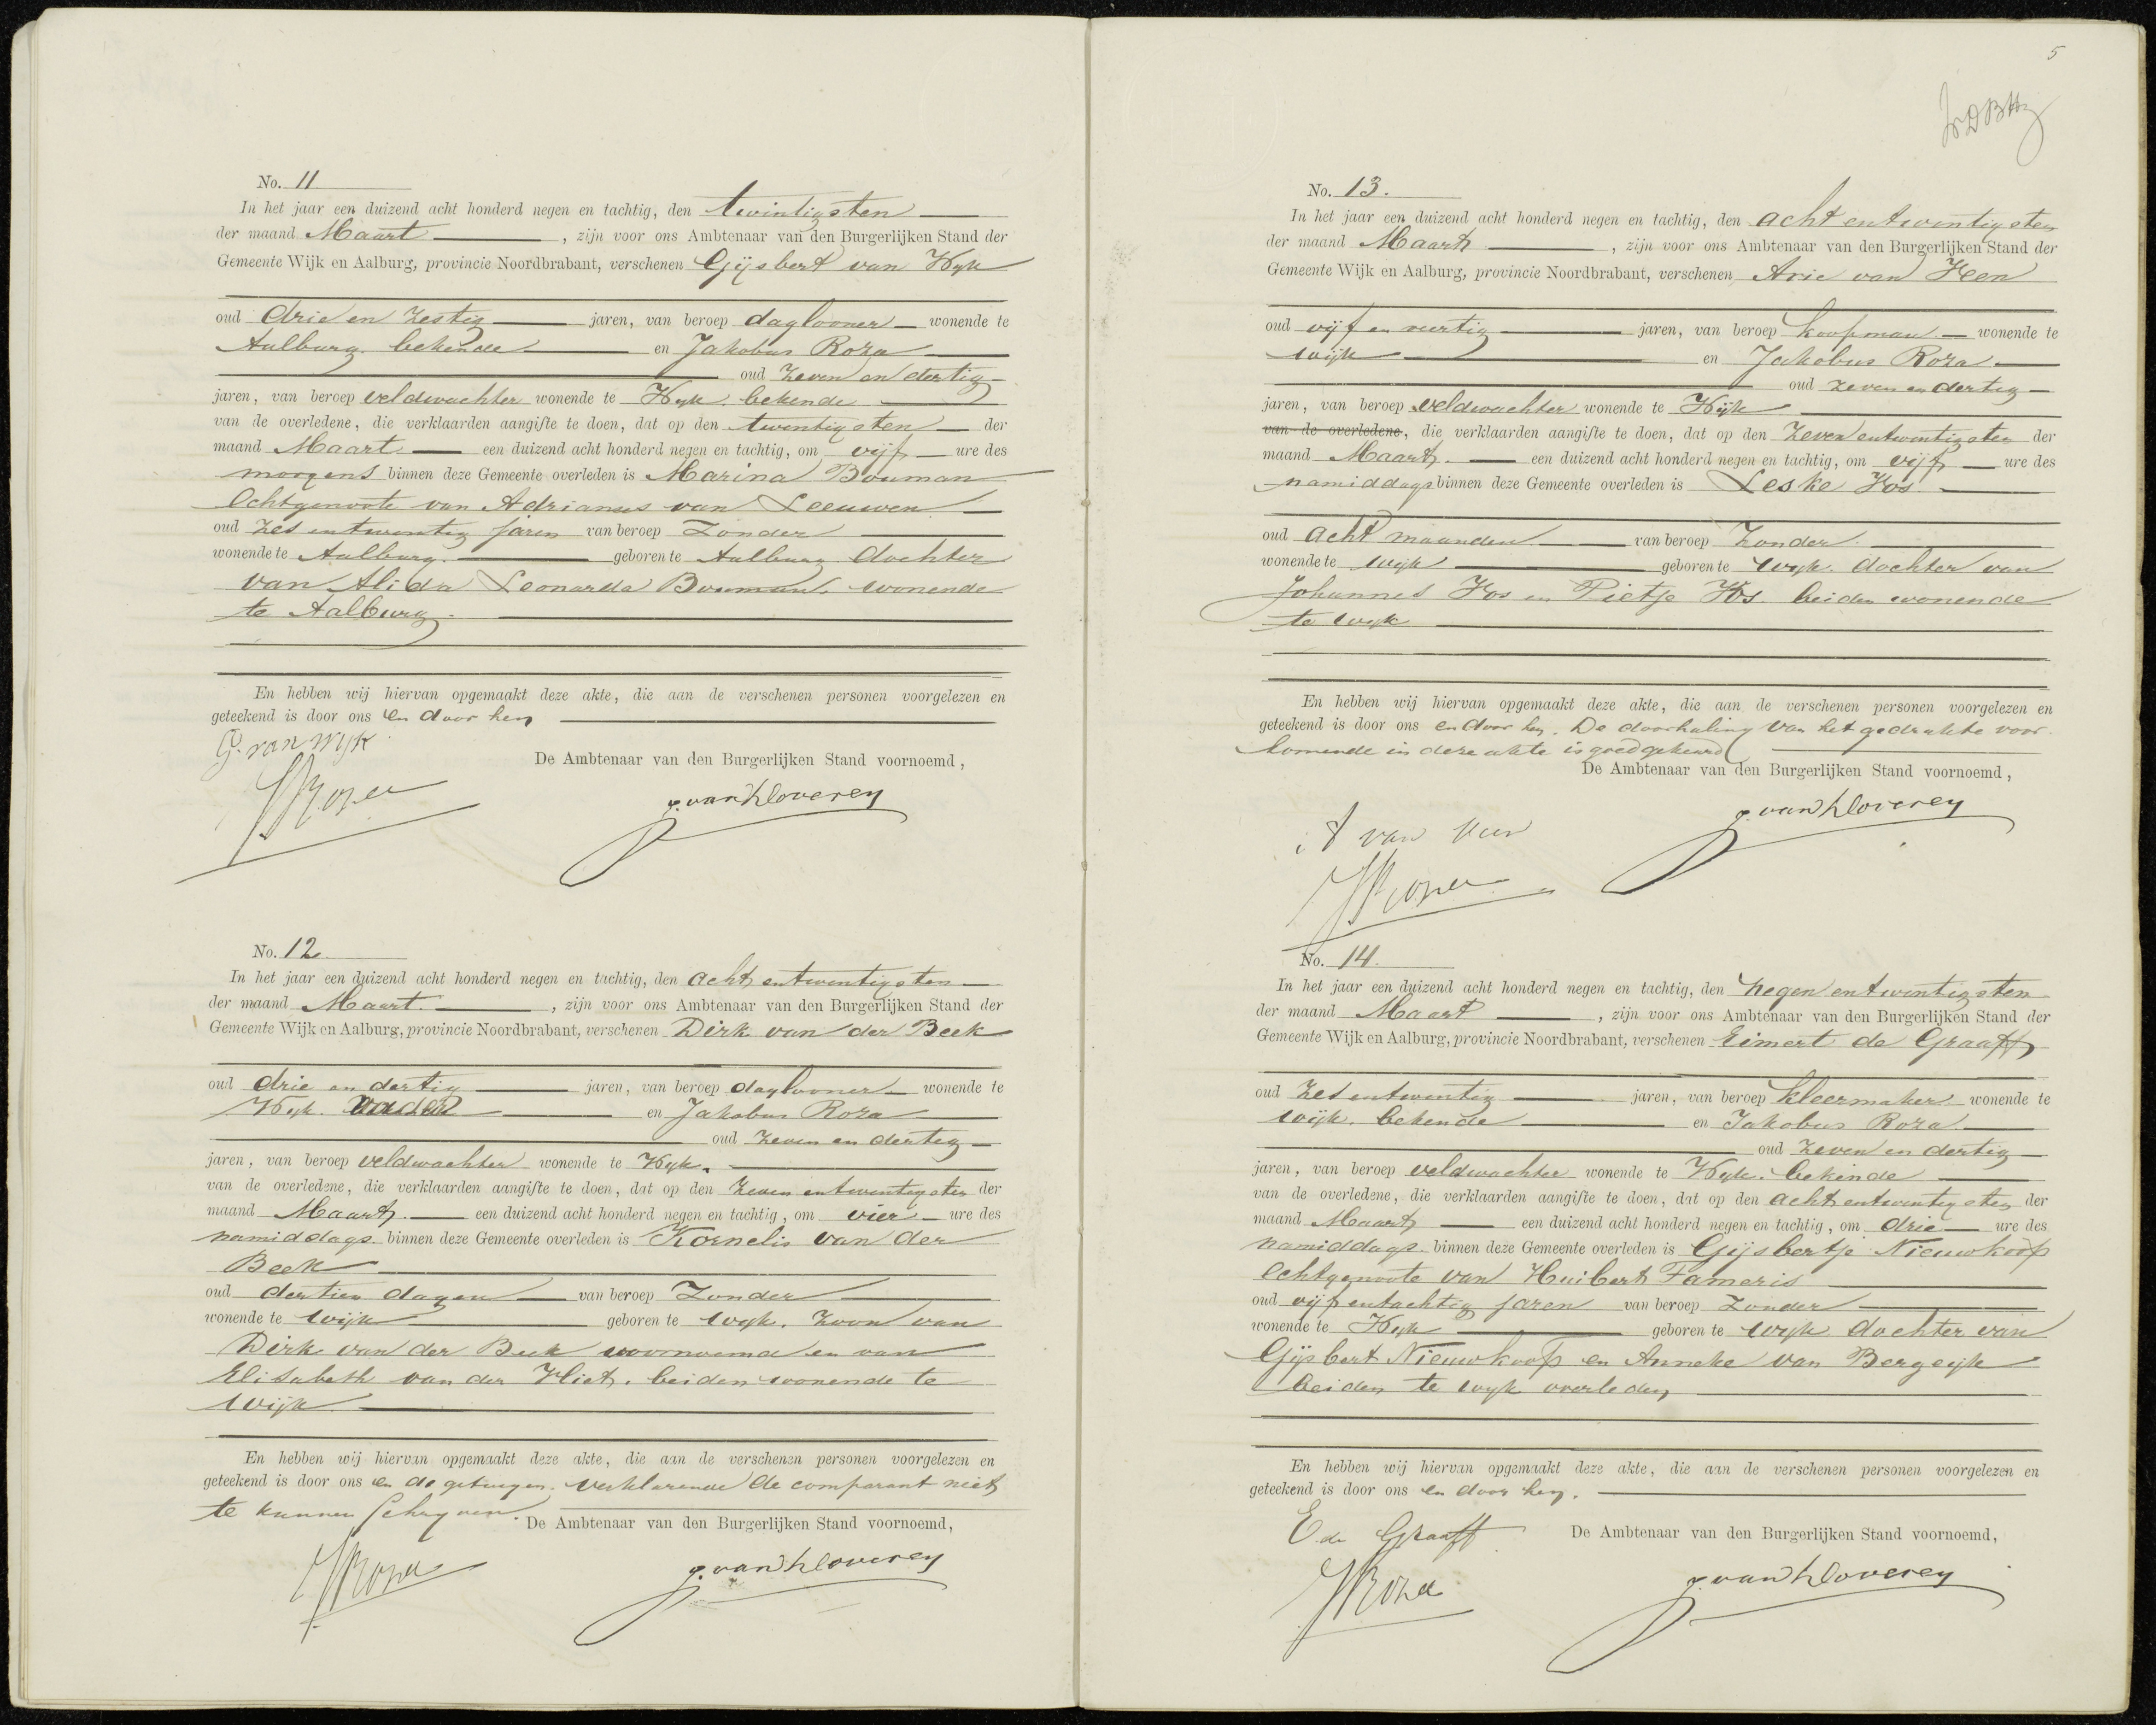 No. 11
In het jaar een duizend acht honderd negen en tachtig, den twintigsten
der maand Maart, zijn voor ons Ambtenaar van den Burgerlijken Stand der
Gemeente Wijk en Aalburg, provincie Noordbrabant, verschenen Gijsbert van Wyk
oud drie en zestig jaren, van beroep daglooner wonende te
Aalburg. bekende en Jakobus Roza
oud zeven en dertig
jaren, van beroep veldwachter wonende te Wyk. bekende
van de overledene, die verklaarden aangifte te doen, dat op den twintigsten der
maand Maart een duizend acht honderd negen en tachtig, om vijf ure des
morgens binnen deze Gemeente overleden is Marina Bouman
Echtgenoote van Adrianus van Leeuwen
oud zes en twintig jaren van beroep Zonder
wonende te Aalburg. geboren te Aalburg dochter
van Alida Leonarda Bouman, wonende
te Aalburg.
En hebben wij hiervan opgemaakt deze akte, die aan de verschenen personen voorgelezen en
geteekend is door ons en door hen
G. van Wijk
De Ambtenaar van den Burgerlijken Stand voornoemd,
JRoza
No. 12
In het jaar een duizend acht honderd negen en tachtig, den acht en twintigsten
der maand Maart., zijn voor ons Ambtenaar van den Burgerlijken Stand der
Gemeente Wijk en Aalburg, provincie Noordbrabant, verschenen Dirk van der Beek
oud drie en dertig jaren, van beroep daglooner wonende te
Wyk. vader en Jakobus Roza
oud zeven en dertig
jaren, van beroep veldwachter wonende te Wyk.
van de overledene, die verklaarden aangifte te doen, dat op den zeven en twintigsten der
maand Maart. een duizend acht honderd negen en tachtig, om vier ure des
namiddags binnen deze Gemeente overleden is Kornelis van der
Beek
oud dertien dagen van beroep Zonder
wonende te wijk geboren te wyk. Zoon van
Dirk van der Beek voornoemd en van
Elisabeth van der Vliet. beiden wonende te
wijk
En hebben wij hiervan opgemaakt deze akte, die aan de verschenen personen voorgelezen en
geteekend is door ons en de getuigen. verklarende de comparant niet
te kunnen schryven.
De Ambtenaar van den Burgerlijken Stand voornoemd,
JRoza
5
No. 13.
In het jaar een duizend acht honderd negen en tachtig, den acht en twintigsten
der maand Maart, zijn voor ons Ambtenaar van den Burgerlijken Stand der
Gemeente Wijk en Aalburg, provincie Noordbrabant, verschenen Arie van Veen
oud vijf en veertig jaren, van beroep koopman wonende te
wijk en Jakobus Roza
oud zeven en dertig
jaren, van beroep veldwachter wonende te Wijk
van de overledene, die verklaarden aangifte te doen, dat op den zeven en twintigsten der
maand Maart. een duizend acht honderd negen en tachtig, om vijf ure des
namiddags binnen deze Gemeente overleden is Leske Vos.
oud acht maanden van beroep Zonder.
wonende te wijk geboren te wyk. dochter van
Johannes Vos en Pietje Vos beiden wonende
te wyk
En hebben wij hiervan opgemaakt deze akte, die aan de verschenen personen voorgelezen en
geteekend is door ons en door hen. De doorhaling van het gedrukte voor
komende in deze akte is goedgekeurd
De Ambtenaar van den Burgerlijken Stand voornoemd,
A van Veen
JRoza
No. 14.
In het jaar een duizend acht honderd negen en tachtig, den negen en twintigsten
der maand Maart, zijn voor ons Ambtenaar van den Burgerlijken Stand der
Gemeente Wijk en Aalburg, provincie Noordbrabant, verschenen Eimert de Graaff
oud zes en twintig jaren, van beroep kleermaker wonende te
wijk. bekende en Jakobus Roza
oud zeven en dertig
jaren, van beroep veldwachter wonende te Wyk. bekende
van de overledene, die verklaarden aangifte te doen, dat op den acht en twintigsten der
maand Maart een duizend acht honderd negen en tachtig, om drie ure des
namiddags binnen deze Gemeente overleden is Gijsbertje Nieuwkoop
Echtgenoote van Huibert Fameris
oud vijf en tachtig jaren van beroep Zonder
wonende te Wyk geboren te wyk dochter van
Gijsbert Nieuwkoop en Anneke van Bergeyk
beiden te wyk overleden
En hebben wij hiervan opgemaakt deze akte, die aan de verschenen personen voorgelezen en
geteekend is door ons en door hen.
E de Graaff
De Ambtenaar van den Burgerlijken Stand voornoemd,
JRoza